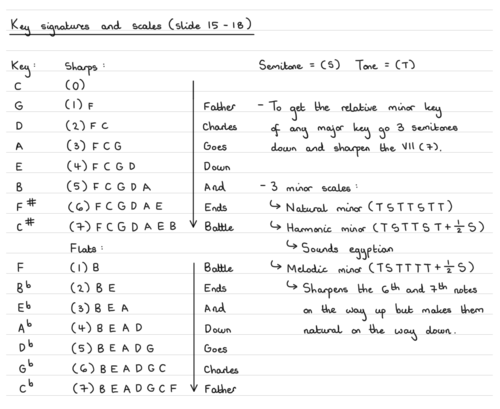 Key signatures and scales (slide 15-18)
Key: Sharps:
C (0)
G (1) F Father
D (2) F C Charles
A (3) F C G Goes
E (4) F C G D Down
B (5) F C G D A And
F# (6) F C G D A E Ends
C# (7) F C G D A E B Battle
Flats:
F (1) B Battle
Bb (2) B E Ends
Eb (3) B E A And
Ab (4) B E A D Down
Db (5) B E A D G Goes
Gb (6) B E A D G C Charles
Cb (7) B E A D G C F Father
Semitone = (S) Tone = (T)
- To get the relative minor key
of any major key go 3 semitones
down and sharpen the VII (7).
- 3 minor scales:
↳ Natural minor (T S T T S T T)
↳ Harmonic minor (T S T T S T + ½ S)
↳ Sounds egyptian
↳ Melodic minor (T S T T T T + ½ S)
↳ Sharpens the 6th and 7th notes
on the way up but makes them
natural on the way down.